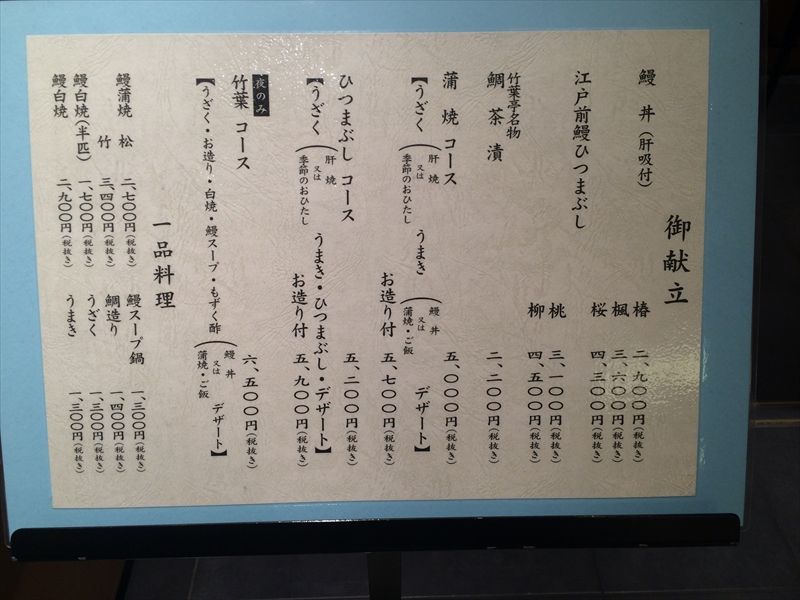 御献立
鰻丼（肝吸付）
椿 二、九〇〇円（税抜き）
楓 三、六〇〇円（税抜き）
桜 四、三〇〇円（税抜き）
江戸前鰻ひつまぶし
桃 三、一〇〇円（税抜き）
柳 四、五〇〇円（税抜き）
竹葉亭名物
鯛茶漬 二、二〇〇円（税抜き）
蒲焼コース 五、〇〇〇円（税抜き）
【うざく（肝焼又は季節のおひたし うまき（鰻丼又は蒲焼・ご飯 デザート】
お造り付 五、七〇〇円（税抜き）
ひつまぶしコース 五、二〇〇円（税抜き）
【うざく（肝焼又は季節のおひたし うまき・ひつまぶし・デザート】
お造り付 五、九〇〇円（税抜き）
夜のみ
竹葉コース 六、五〇〇円（税抜き）
【うざく・お造り・白焼・鰻スープ・もずく酢（鰻丼又は蒲焼・ご飯 デザート】
一品料理
鰻蒲焼 松 二、七〇〇円（税抜き）
竹 三、四〇〇円（税抜き）
鰻白焼（半匹） 一、七〇〇円（税抜き）
鰻白焼 二、九〇〇円（税抜き）
鰻スープ鍋 一、三〇〇円（税抜き）
鯛造り 一、四〇〇円（税抜き）
うざく 一、三〇〇円（税抜き）
うまき 一、三〇〇円（税抜き）